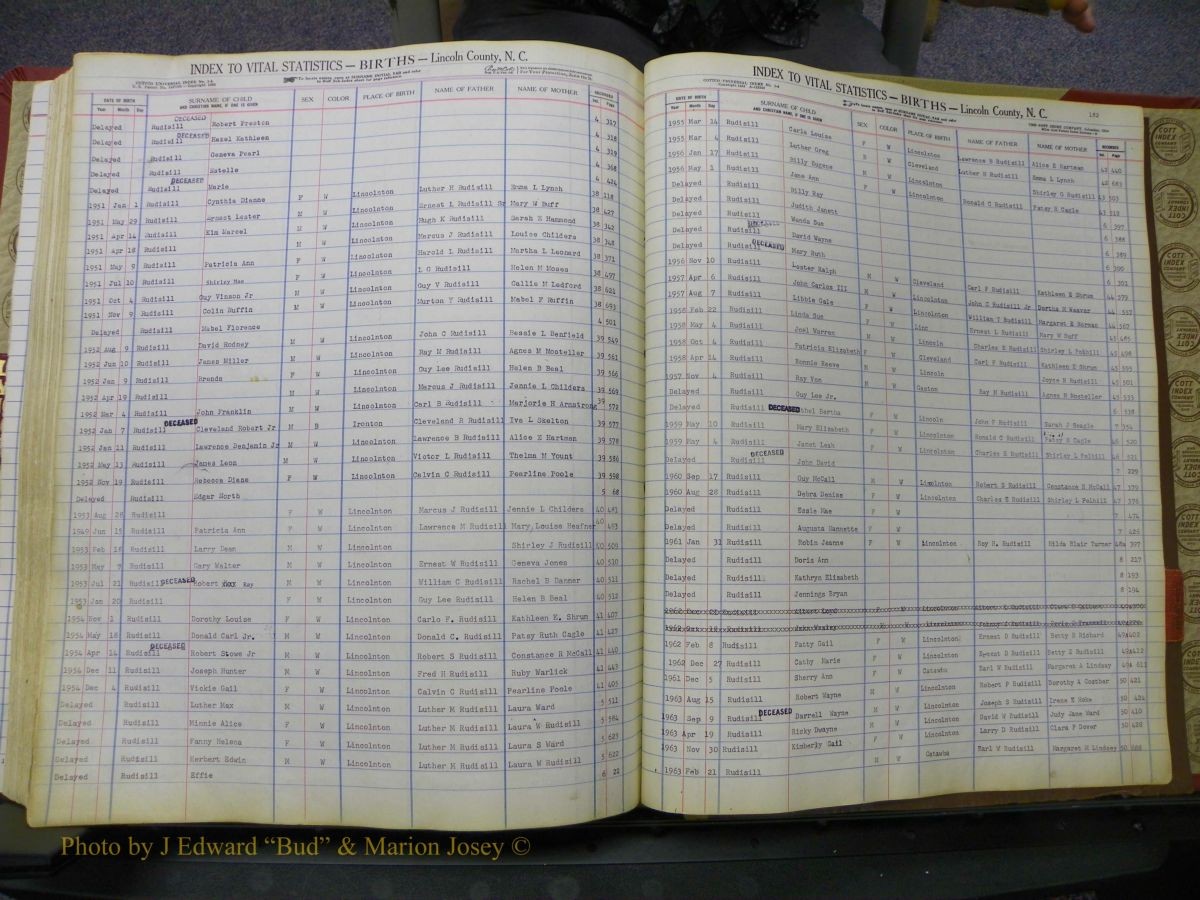 INDEX TO VITAL STATISTICS — BIRTHS — Lincoln County, N. C.
DATE OF BIRTH SURNAME OF CHILD SEX COLOR PLACE OF BIRTH NAME OF FATHER NAME OF MOTHER RECORDED
Year Month Day AND CHRISTIAN NAME, IF ONE IS GIVEN Vol. Page
DECEASED
Delayed Rudisill Robert Preston 4 317
DECEASED
Delayed Rudisill Hazel Kathleen 4 318
Delayed Rudisill Geneva Pearl 4 319
Delayed Rudisill Estelle 4 368
DECEASED
Delayed Rudisill Marie 4 424
1951 Jan 1 Rudisill Cynthia Dianne F W Lincolnton Luther H Rudisill Emma L Lynch 38 118
1951 May 29 Rudisill Ernest Lester M W Lincolnton Ernest L Rudisill Sr Mary W Buff 38 427
1951 Apr 14 Rudisill Kim Marcel M W Lincolnton Hugh K Rudisill Sarah E Hammond 38 342
1951 Apr 18 Rudisill M W Lincolnton Marcus J Rudisill Louise Childers 38 348
1951 May 9 Rudisill Patricia Ann F W Lincolnton Harold L Rudisill Martha L Leonard 38 371
1951 Jul 10 Rudisill Shirley Mae F W Lincolnton L G Rudisill Helen M Moses 38 497
1951 Oct 4 Rudisill Guy Vinson Jr M W Lincolnton Guy V Rudisill Callie M Ledford 38 621
1951 Nov 9 Rudisill Colin Ruffin M W Lincolnton Murton Y Rudisill Mabel F Ruffin 38 693
Delayed Rudisill Mabel Florence 4 501
1952 Aug 9 Rudisill David Rodney M W Lincolnton John C Rudisill Bessie L Benfield 39 549
1952 Jun 10 Rudisill James Miller M W Lincolnton Ray M Rudisill Agnes M Mosteller 39 561
1952 Jan 9 Rudisill Brenda F W Lincolnton Guy Lee Rudisill Helen B Beal 39 566
1952 Apr 19 Rudisill M W Lincolnton Marcus J Rudisill Jennie L Childers 39 569
1952 Mar 4 Rudisill John Franklin M W Lincolnton Carl B Rudisill Marjorie H Armstrong 39 572
DECEASED
1952 Jan 7 Rudisill Cleveland Robert Jr M B Ironton Cleveland R Rudisill Iva L Skelton 39 577
1952 Jan 11 Rudisill Lawrence Benjamin Jr M W Lincolnton Lawrence B Rudisill Alice E Hartman 39 578
1952 May 13 Rudisill James Leon M W Lincolnton Victor L Rudisill Thelma M Yount 39 586
1952 Nov 19 Rudisill Rebecca Diane F W Lincolnton Calvin C Rudisill Pearline Poole 39 598
Delayed Rudisill Edgar North 5 68
1953 Aug 26 Rudisill F W Lincolnton Marcus J Rudisill Jennie L Childers 40 481
1949 Jun 15 Rudisill Patricia Ann F W Lincolnton Lawrence M Rudisill Mary Louise Heafner 40 493
1953 Feb 16 Rudisill Larry Dean M W Lincolnton Shirley J Rudisill 40 509
1953 May 7 Rudisill Gary Walter M W Lincolnton Ernest W Rudisill Geneva Jones 40 510
1953 Jul 21 Rudisill DECEASED Robert Ray M W Lincolnton William C Rudisill Rachel B Danner 40 511
1953 Jan 20 Rudisill F W Lincolnton Guy Lee Rudisill Helen B Beal 40 512
1954 Nov 1 Rudisill Dorothy Louise F W Lincolnton Carlo F. Rudisill Kathleen E. Shrum 41 407
1954 May 18 Rudisill Donald Carl Jr. M W Lincolnton Donald C. Rudisill Patsy Ruth Cagle 41 427
DECEASED
1954 Apr 14 Rudisill Robert Stowe Jr M W Lincolnton Robert S Rudisill Constance R McCall 41 440
1954 Dec 11 Rudisill Joseph Hunter M W Lincolnton Fred H Rudisill Ruby Warlick 41 443
1954 Dec 4 Rudisill Vickie Gail F W Lincolnton Calvin C Rudisill Pearline Poole 41 405
Delayed Rudisill Luther Max M W Lincolnton Luther M Rudisill Laura Ward 5 511
Delayed Rudisill Minnie Alice F W Lincolnton Luther M Rudisill Laura W Rudisill 5 584
Delayed Rudisill Fanny Helena F W Lincolnton Luther M Rudisill Laura S Ward 5 623
Delayed Rudisill Herbert Edwin M W Lincolnton Luther M Rudisill Laura W Rudisill 5 622
Delayed Rudisill Effie 6 22
INDEX TO VITAL STATISTICS — BIRTHS — Lincoln County, N. C. 182
DATE OF BIRTH SURNAME OF CHILD SEX COLOR PLACE OF BIRTH NAME OF FATHER NAME OF MOTHER RECORDED
Year Month Day AND CHRISTIAN NAME, IF ONE IS GIVEN Vol. Page
1955 Mar 14 Rudisill Carla Louise F W Lincolnton Lawrence B Rudisill Alice E Hartman 42 440
1955 Mar 4 Rudisill Luther Greg M W Cleveland Luther H Rudisill Emma L Lynch 42 683
1956 Jan 17 Rudisill Billy Eugene M W Lincolnton Shirley G Rudisill 43 503
1956 May 1 Rudisill Jane Ann F W Lincolnton Ronald C Rudisill Patsy R Cagle 43 512
Delayed Rudisill Billy Ray 6 397
Delayed Rudisill Judith Janett 6 388
Delayed Rudisill Wanda Sue 6 389
Delayed Rudisill David Wayne 6 390
Delayed Rudisill DECEASED Mary Ruth 6 301
1956 Nov 10 Rudisill Lester Ralph M W Cleveland Carl F Rudisill Kathleen E Shrum 44 579
1957 Apr 6 Rudisill John Carlos III M W Lincolnton John C Rudisill Jr Dortha M Weaver 44 557
1957 Aug 7 Rudisill Libbie Gale F W Lincolnton William T Rudisill Margaret E Norman 44 567
1958 Feb 22 Rudisill Linda Sue F W Linc Ernest L Rudisill Mary W Buff 45 485
1958 May 4 Rudisill Joel Warren M W Lincolnton Charles E Rudisill Shirley L Felhill 45 498
1958 Oct 4 Rudisill Patricia Elizabeth F W Cleveland Carl F Rudisill Kathleen E Shrum 45 595
1958 Apr 14 Rudisill Ronnie Reeve M W Lincoln Joyce N Rudisill 45 501
1957 Nov 4 Rudisill Ray Von M W Gaston Ray M Rudisill Agnes M Mosteller 45 533
Delayed Rudisill Guy Lee Jr. 6 538
Delayed Rudisill DECEASED Ethel Bertha F W Lincoln John P Rudisill Sarah J Seagle 7 354
1959 May 10 Rudisill Mary Elizabeth F W Lincolnton Ronald C Rudisill Patsy R Cagle 46 520
1959 May 4 Rudisill Janet Leah F W Lincolnton Charles E Rudisill Shirley L Felhill 46 521
DECEASED
Delayed Rudisill John David 7 229
1960 Sep 17 Rudisill Guy McCall M W Lincolnton Robert S Rudisill Constance R McCall 47 379
1960 Aug 28 Rudisill Debra Denise F W Lincolnton Charles E Rudisill Shirley L Felhill 47 378
Delayed Rudisill Essie Mae F W 7 474
Delayed Rudisill Augusta Nannette F W 7 425
1961 Jan 31 Rudisill Robin Jeanne F W Lincolnton Roy H. Rudisill Hilda Blair Turner 48a 397
Delayed Rudisill Doris Ann 8 217
Delayed Rudisill Kathryn Elizabeth 8 193
Delayed Rudisill Jennings Bryan 8 194
1962 Feb 8 Rudisill Patty Gail F W Lincolnton Ernest D Rudisill Betty S Richard 49a 402
1962 Dec 27 Rudisill Cathy Marie F W Lincolnton Ernest D Rudisill Betty S Rudisill 49a 412
1961 Dec 5 Rudisill Sherry Ann F W Catawba Earl W Rudisill Margaret A Lindsay 49a 611
1963 Aug 15 Rudisill Robert Wayne M W Lincolnton Robert P Rudisill Dorothy A Costner 50 421
1963 Sep 9 Rudisill DECEASED Darrell Wayne M W Lincolnton Joseph S Rudisill Irene E Hoke 50 424
1963 Apr 19 Rudisill Ricky Dwayne M W Lincolnton David W Rudisill Judy Jane Ward 50 410
1963 Nov 30 Rudisill Kimberly Gail F W Lincolnton Larry D Rudisill Clara F Dover 50 428
1963 Feb 21 Rudisill M W Catawba Earl W Rudisill Margaret H Lindsey 50
COTT INDEX COMPANY
Photo by J Edward “Bud” & Marion Josey ©